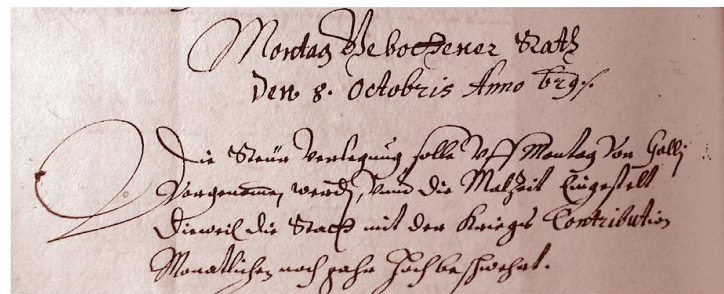 Montag Gebottener Rath
Den 8. Octobris Anno 629.
Die Steür Verlegung solle Vff Montag Vor Gallj
Vorgenommen werden, vnnd die Malzeit Eingestelt
Dieweil die Statt mit der Kriegs Contribution
Monatlichen noch gahr Hochbeschwehrt.